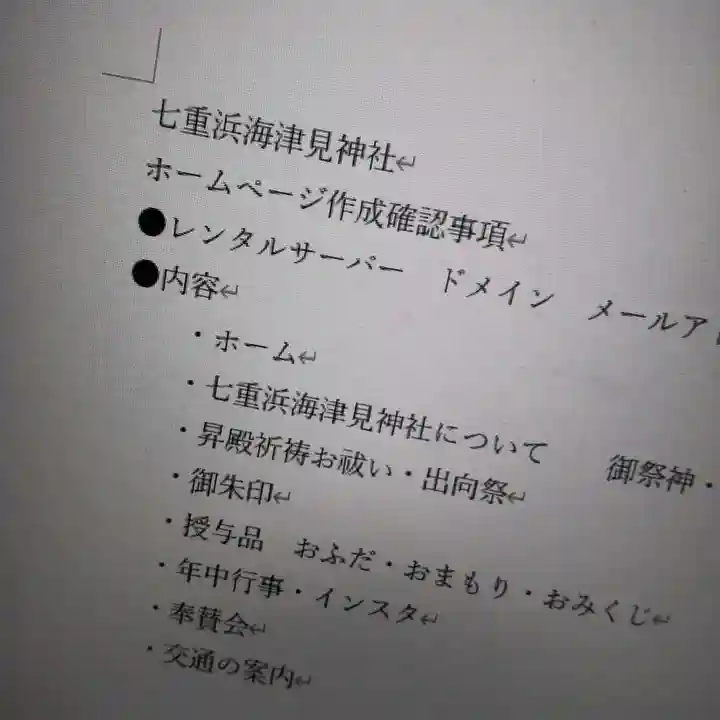 七重浜海津見神社
ホームページ作成確認事項
●レンタルサーバー　ドメイン　メールア
●内容
・ホーム
・七重浜海津見神社について　　御祭神・
・昇殿祈祷お祓い・出向祭
・御朱印
・授与品　おふだ・おまもり・おみくじ
・年中行事・インスタ
・奉賛会
・交通の案内